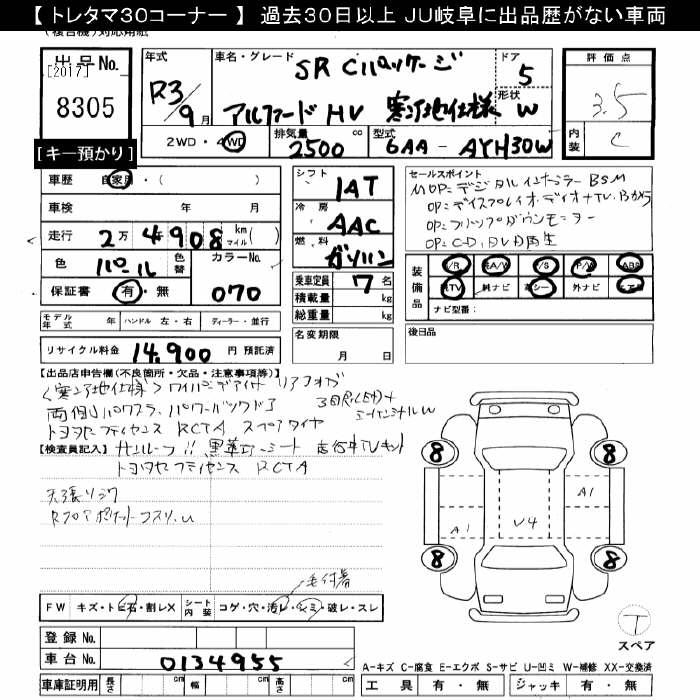 【 トレタマ30コーナー 】 過去30日以上 JU岐阜に出品歴がない車両
出品No.
[2017]
8305
[キー預かり]
年式
R3/9月
車名・グレード
SR Cパッケージ
アルファード HV 寒冷地仕様
ドア
5
形状
W
評価点
3.5
内装
C
2WD・4WD
排気量
2500 cc
型式
6AA - AYH30W
車歴 自家用・( )
車検 年 月
走行 2万4908 km マイル( )
色 パール 色替 カラーNo.
保証書 有・無 070
シフト
IAT
冷房
AAC
燃料
ガソリン
乗車定員 7 名
積載量 kg
総重量 kg
セールスポイント
MOP=デジタルインナーミラー BSM
OP=ディスプレイオーディオ+TV. Bカメラ
OP=フリップダウンモニター
OP=CD, DVD再生
装備品
S/R A/W P/S P/W ABS
RTV 純ナビ 革シート 外ナビ エアB
ナビ型番:
モデル年式 年 ハンドル 左・右 ディーラー・並行
名変期限
月 日
後日品
リサイクル料金 14,900 円 預託済
【出品店申告欄(不良箇所・欠品・注意事項等)】
<寒冷地仕様> ワイパーデアイサー リアフォグ
両側パワスラ、パワーバックドア 3眼LED+
シーケンシャルW
トヨタセーフティセンス RCTA スペアタイヤ
【検査員記入】 サンルーフ!! 黒革エアーシート 走行中TVキット
トヨタセーフティセンス RCTA
天張りシワ
Rフロアポケットコスリ.U
毛付着
FW キズ・トビ石・割レX シート内装 コゲ・穴・汚レ・シミ・破レ・スレ
登録 No.
車台 No. 0134955
車庫証明用 長さ cm 幅 cm 高さ cm
8
8
A1
A1
U4
8
8
T
スペア
A-キズ C-腐食 E-エクボ S-サビ U-凹ミ W-補修 XX-交換済
工具 有・無 ジャッキ 有・無